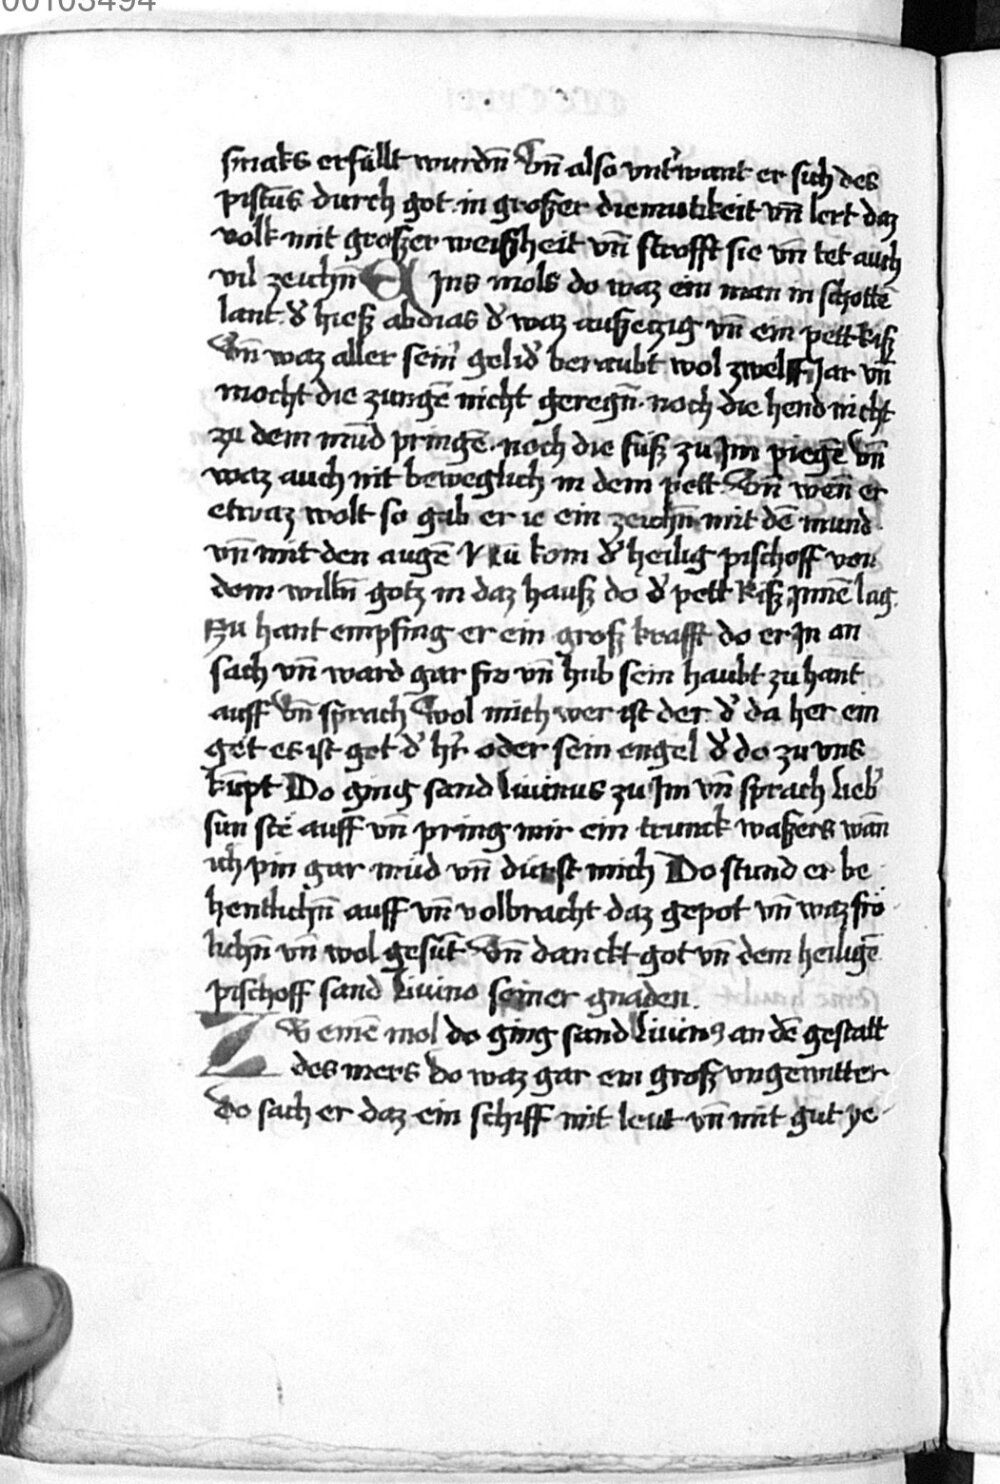 00103494
smaks erfüllt wurdn̄ Vn̄ also vnt'want er sich des
pistūs durch got in großer diemutikeit vn̄ lert daz
volk mit großer weißheit vn̄ strofft sie vn̄ tet auch
vil zeichn̄ EJns mols do waz ein man in schottē
lant. d' hieß abdias d' waz außeczig vn̄ ein pettriß
Vn̄ waz aller sein' gelid' beraubt wol zwelff Jar vn̄
mocht die zungē nicht geregn̄. noch die hend nicht
zu dem mūd pringē. noch die füß zu Jm piegē vn̄
waz auch nit beweglich in dem pett. Vn̄ wen̄ er
etwaz wolt so gab er ie ein zeichn̄ mit dē mund
vn̄ mit den augē Nū kom d' heilig pischoff von
dem willn̄ gotz in daz hauß do d' pett riß Jnnē lag.
Zu hant empfing er ein groß krafft do er Jn an
sach vn̄ ward gar fro vn̄ hub sein haubt zu hant
auff Vn̄ sprach Wol mich wer ist der d' da her ein
get es ist got d' h'r oder sein engel d' do zu vns
kūpt Do ging sand liuinus zu Jm vn̄ sprach lieb'
sun ste auff vn̄ pring mir ein trunck waßers wān
ich pin gar müd vn̄ dürst mich Do stund er be
hentlichn̄ auff vn̄ volbracht daz gepot vn̄ waz frö
lichn̄ vn̄ wol gesūt Vn̄ danckt got vn̄ dem heiligē
pischoff sand liuino seiner gnaden.
Zw einē mol do ging sand liuin9 an dē gestatt
des mers do waz gar ein groß vngewitter
Do sach er daz ein schiff mit leut vn̄ mit gut ye